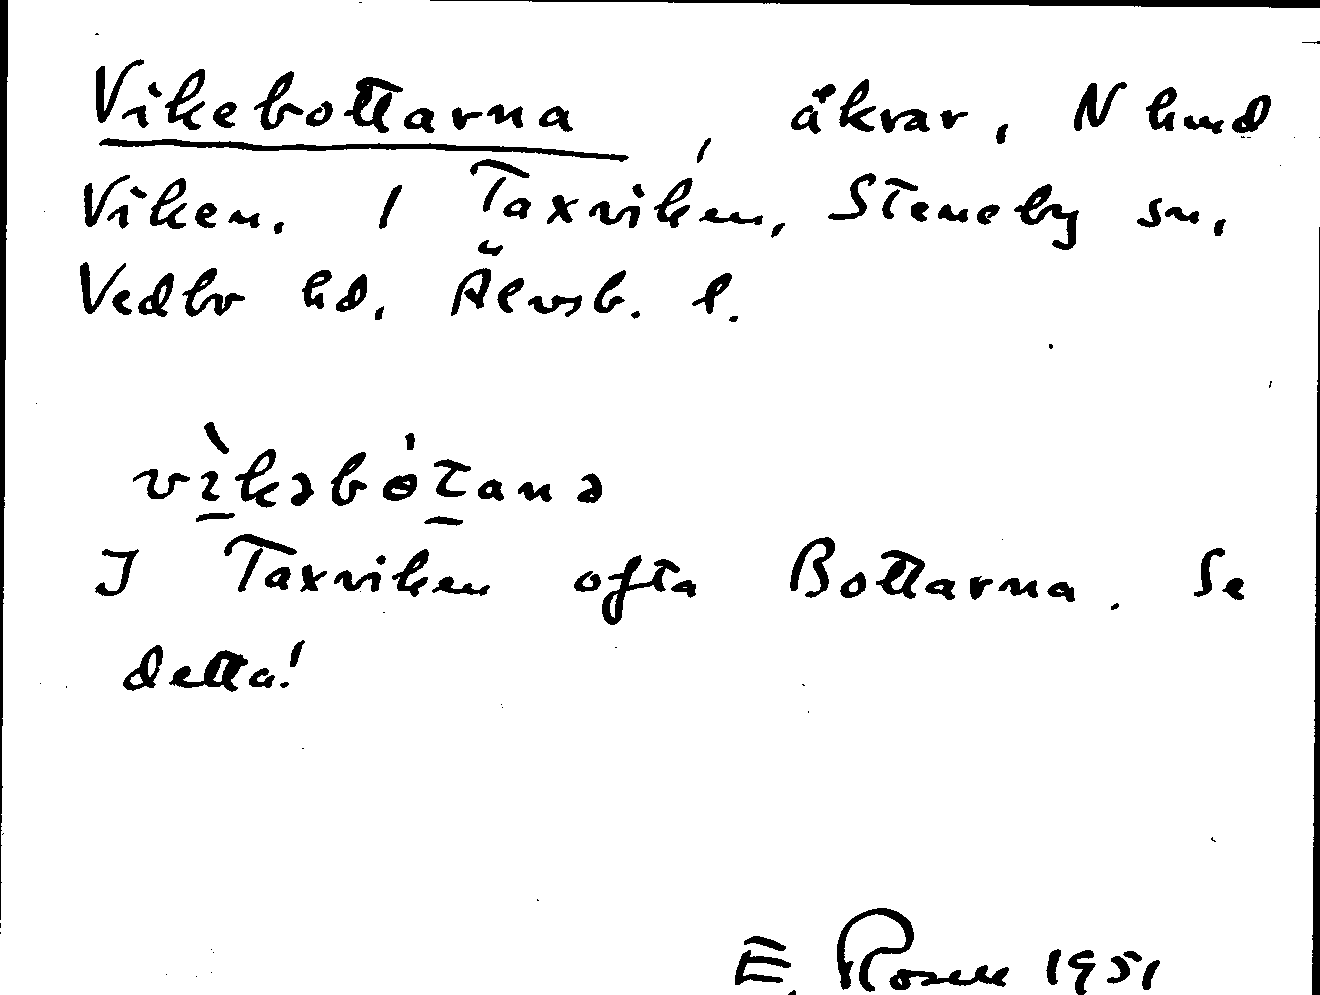 Vikebottarna, åkrar, N hmd
Viken, 1 Taxviken, Steneby sn,
Vedbo hd, Älvsb. l.
vìkəbótanə
I Taxviken ofta Bottarna. Se
detta!
E. Rosell 1951